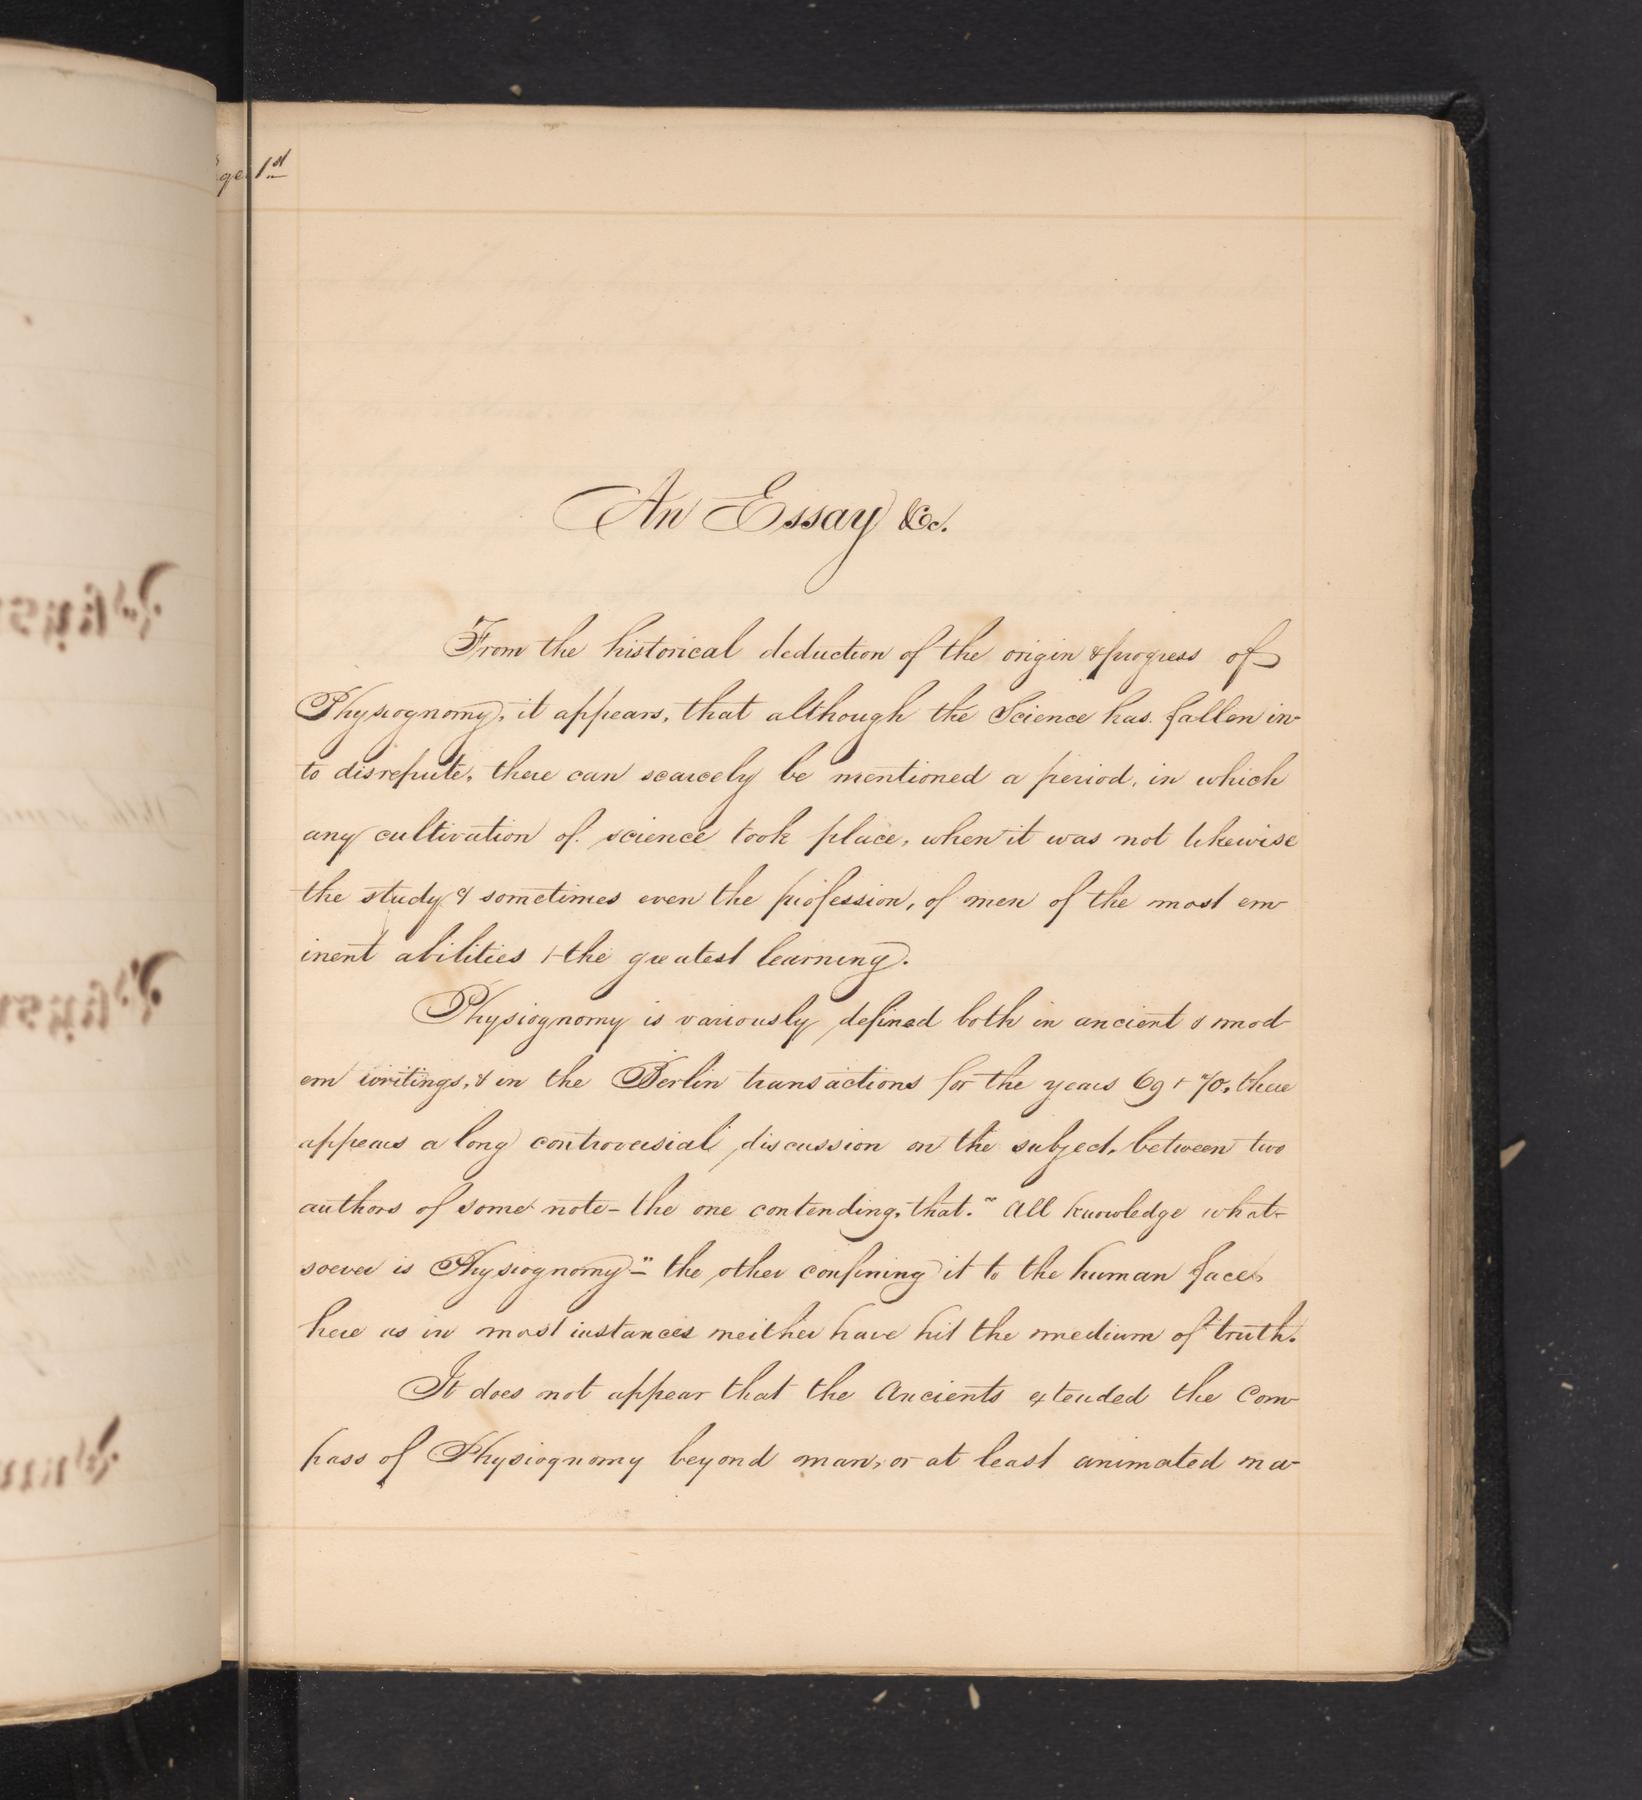 Page 1st
An Essay &c.
From the historical deduction of the origin & progress of
Physiognomy, it appears, that although the Science has fallen in-
to disrepute, there can scarcely be mentioned a period, in which
any cultivation of science took place, when it was not likewise
the study & sometimes even the profession, of men of the most em-
inent abilities & the greatest learning.
Physiognomy is variously defined both in ancient & mod-
ern writings, & in the Berlin transactions for the years 69 & 70, there
appears a long controversial discussion on the subject, between two
authors of some note - the one contending, that "All knowledge what-
soever is Physiognomy" - the other confining it to the human face,
here as in most instances neither have hit the medium of truth.
It does not appear that the Ancients extended the Com-
pass of Physiognomy beyond man, or at least animated na-